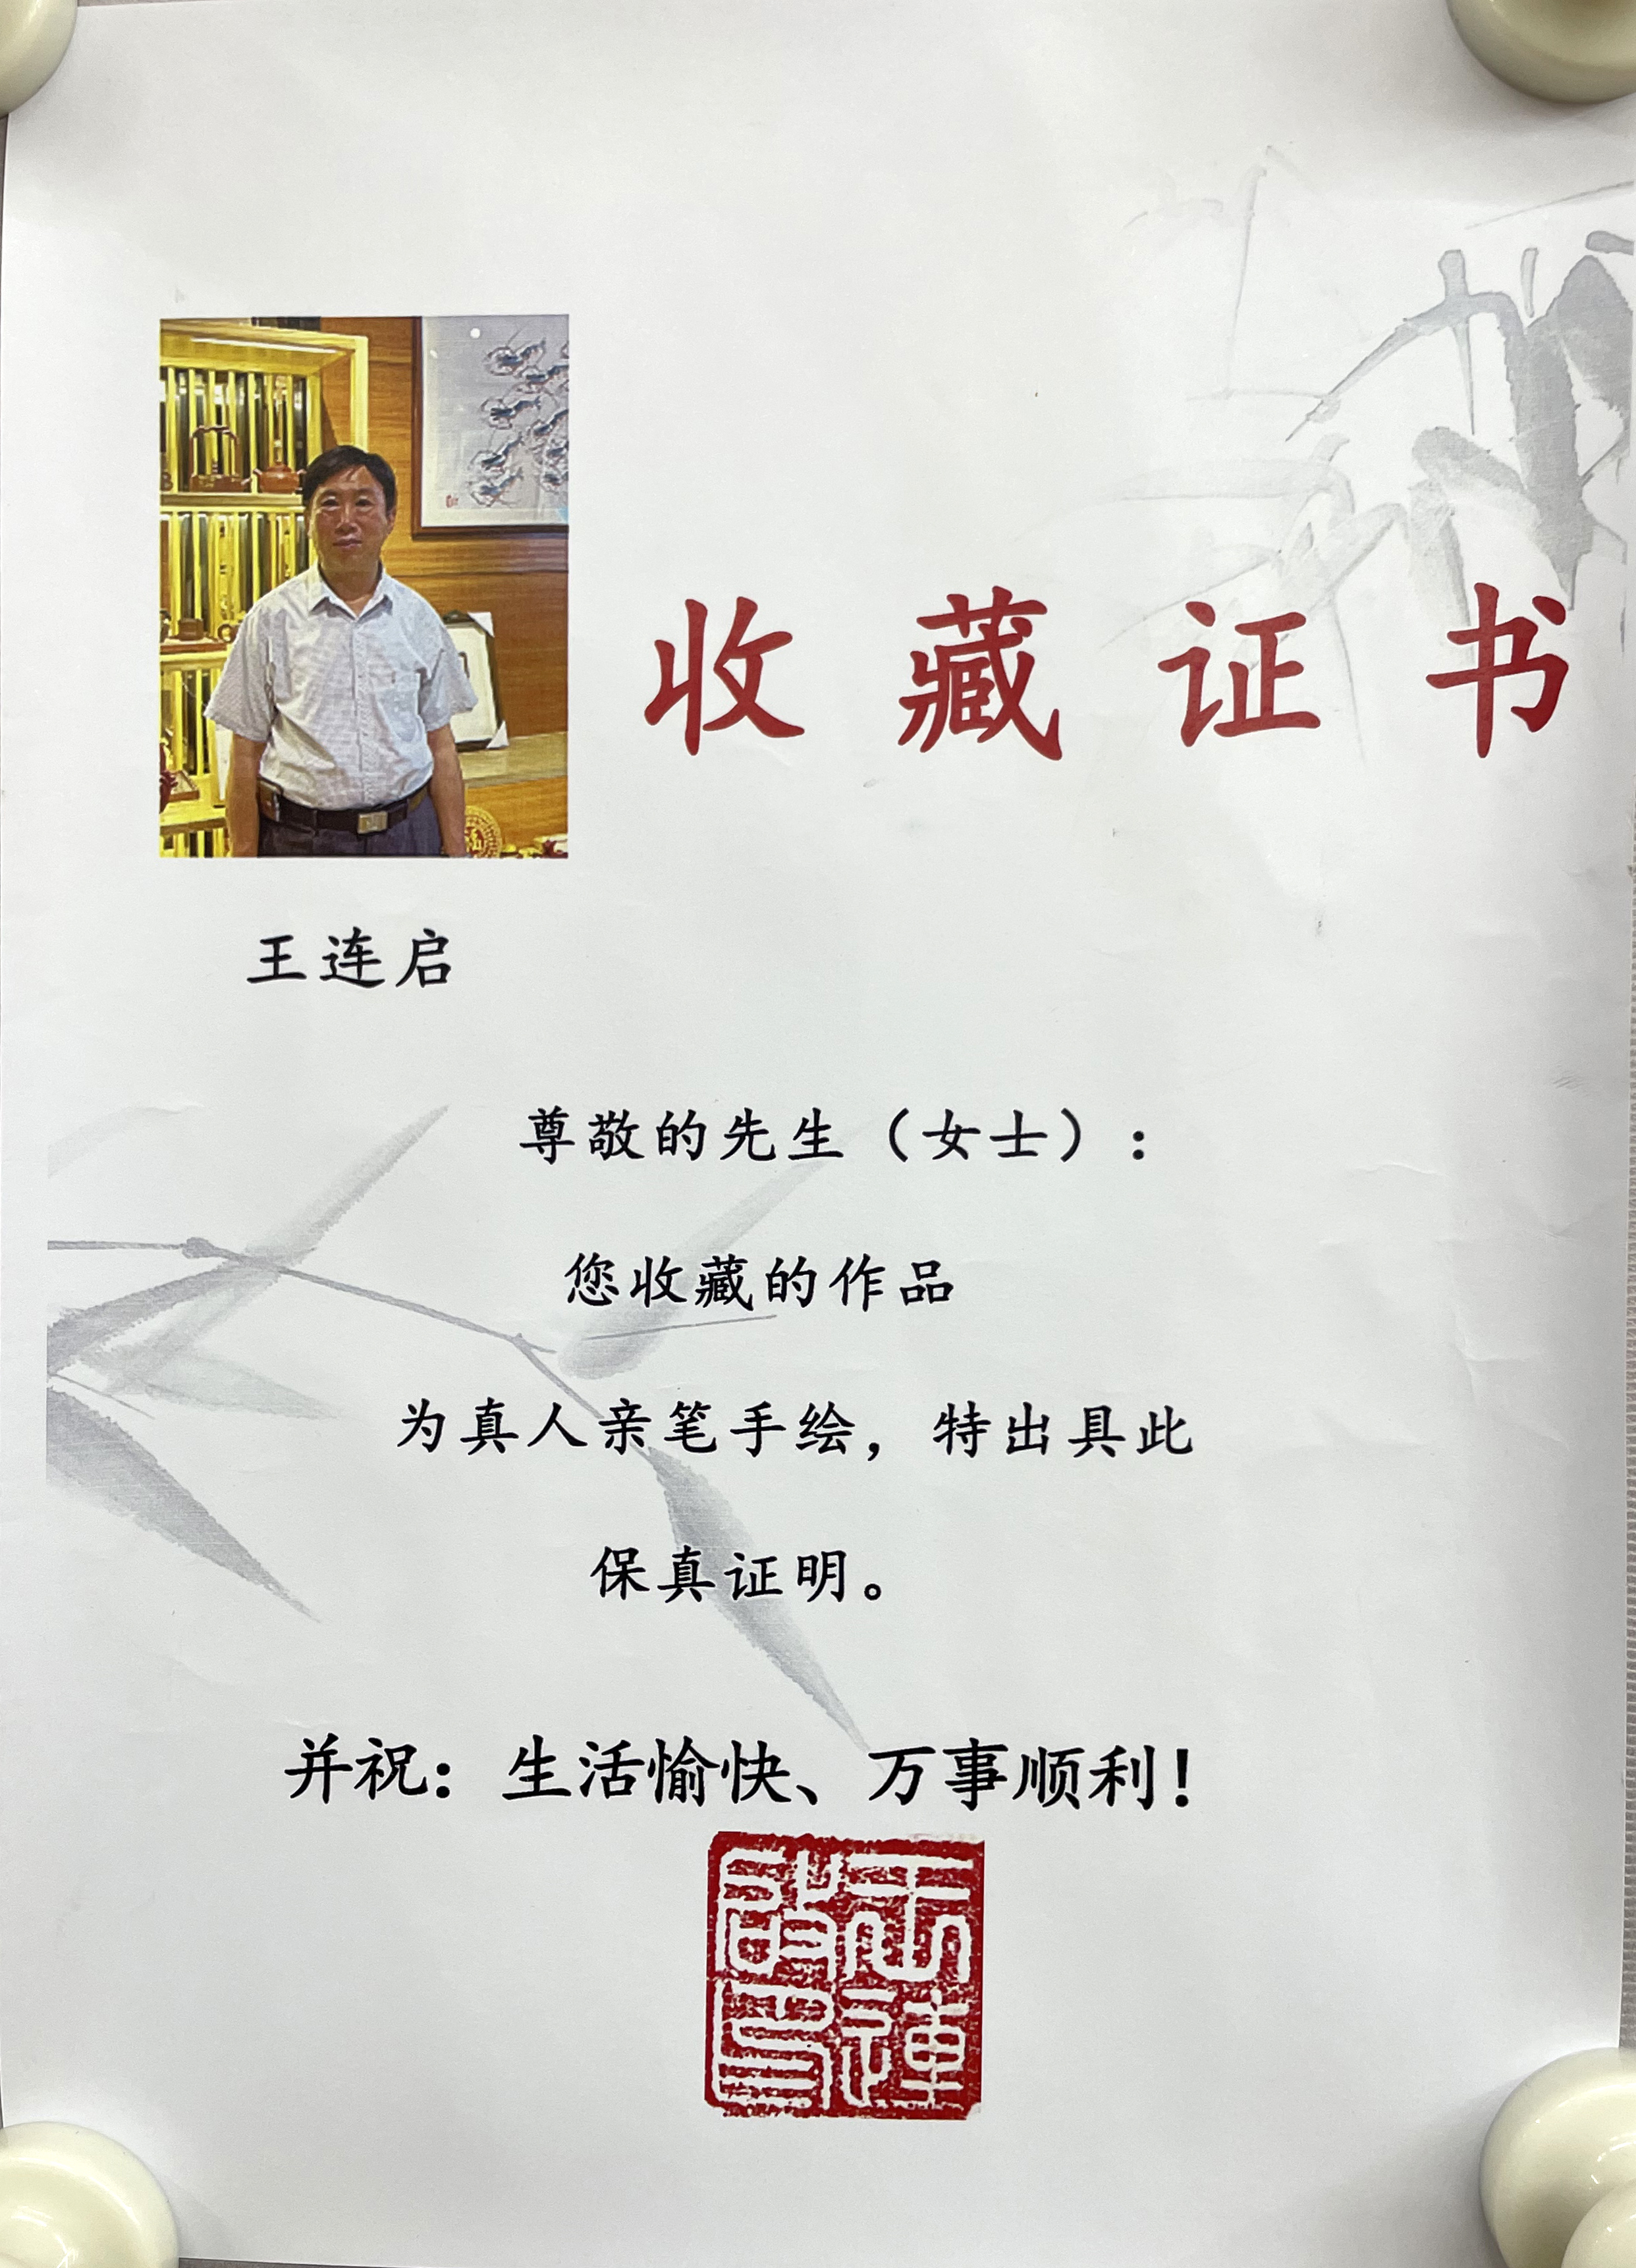 收藏证书
王连启
尊敬的先生（女士）：
您收藏的作品
为真人亲笔手绘，特出具此
保真证明。
并祝：生活愉快、万事顺利！
王連
啟印